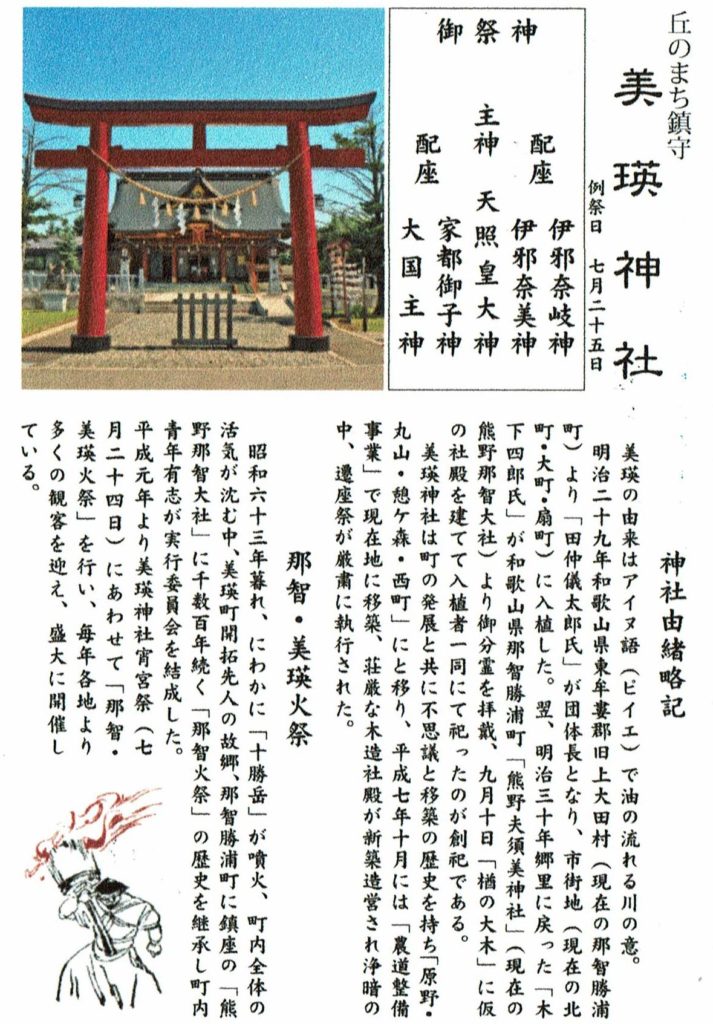 丘のまち鎮守
美瑛神社
例祭日 七月二十五日
御祭神
配座
伊邪奈岐神
伊邪奈美神
主神 天照皇大神
配座
家都御子神
大国主神
神社由緒略記
美瑛の由来はアイヌ語(ピイエ)で油の流れる川の意。
明治二十九年和歌山県東牟婁郡旧上大田村(現在の那智勝浦
町)より「田仲儀太郎氏」が団体長となり、市街地(現在の北
町・大町・扇町)に入植した。翌、明治三十年郷里に戻った「木
下四郎氏」が和歌山県那智勝浦町「熊野夫須美神社」(現在の
熊野那智大社)より御分霊を拝戴、九月十日「楢の大木」に仮
の社殿を建てて入植者一同にて祀ったのが創祀である。
美瑛神社は町の発展と共に不思議と移築の歴史を持ち「原野・
丸山・憩ケ森・西町」にと移り、平成七年十月には「農道整備
事業」で現在地に移築、荘厳な木造社殿が新築造営され浄暗の
中、遷座祭が厳粛に執行された。
那智・美瑛火祭
昭和六十三年暮れ、にわかに「十勝岳」が噴火、町内全体の
活気が沈む中、美瑛町開拓先人の故郷、那智勝浦町に鎮座の「熊
野那智大社」に千数百年続く「那智火祭」の歴史を継承し町内
青年有志が実行委員会を結成した。
平成元年より美瑛神社宵宮祭(七
月二十四日)にあわせて「那智・
美瑛火祭」を行い、毎年各地より
多くの観客を迎え、盛大に開催し
ている。